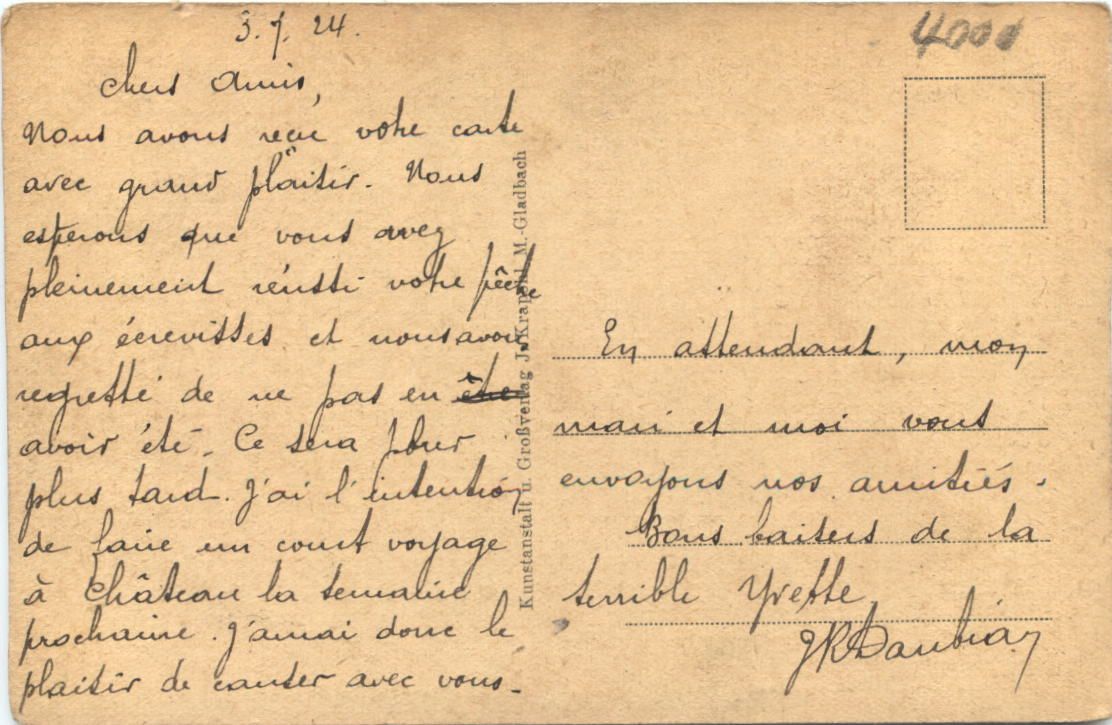 3.7.24.
4000
Chers Amis,
Nous avons reçu votre carte
avec grand plaisir. Nous
esperons que vous avez
pleinement réussi votre pêche
aux écrevisses et nous avons
regretté de ne pas en être
avoir été. Ce sera pour
plus tard. J'ai l'intention
de faire un court voyage
à Château la semaine
prochaine. J'aurai donc le
plaisir de causer avec vous.
Kunstanstalt u. Großverlag J. Krapohl M.-Gladbach
En attendant, mon
mari et moi vous
envoyons nos amitiés.
Bons baisers de la
terrible Yvette